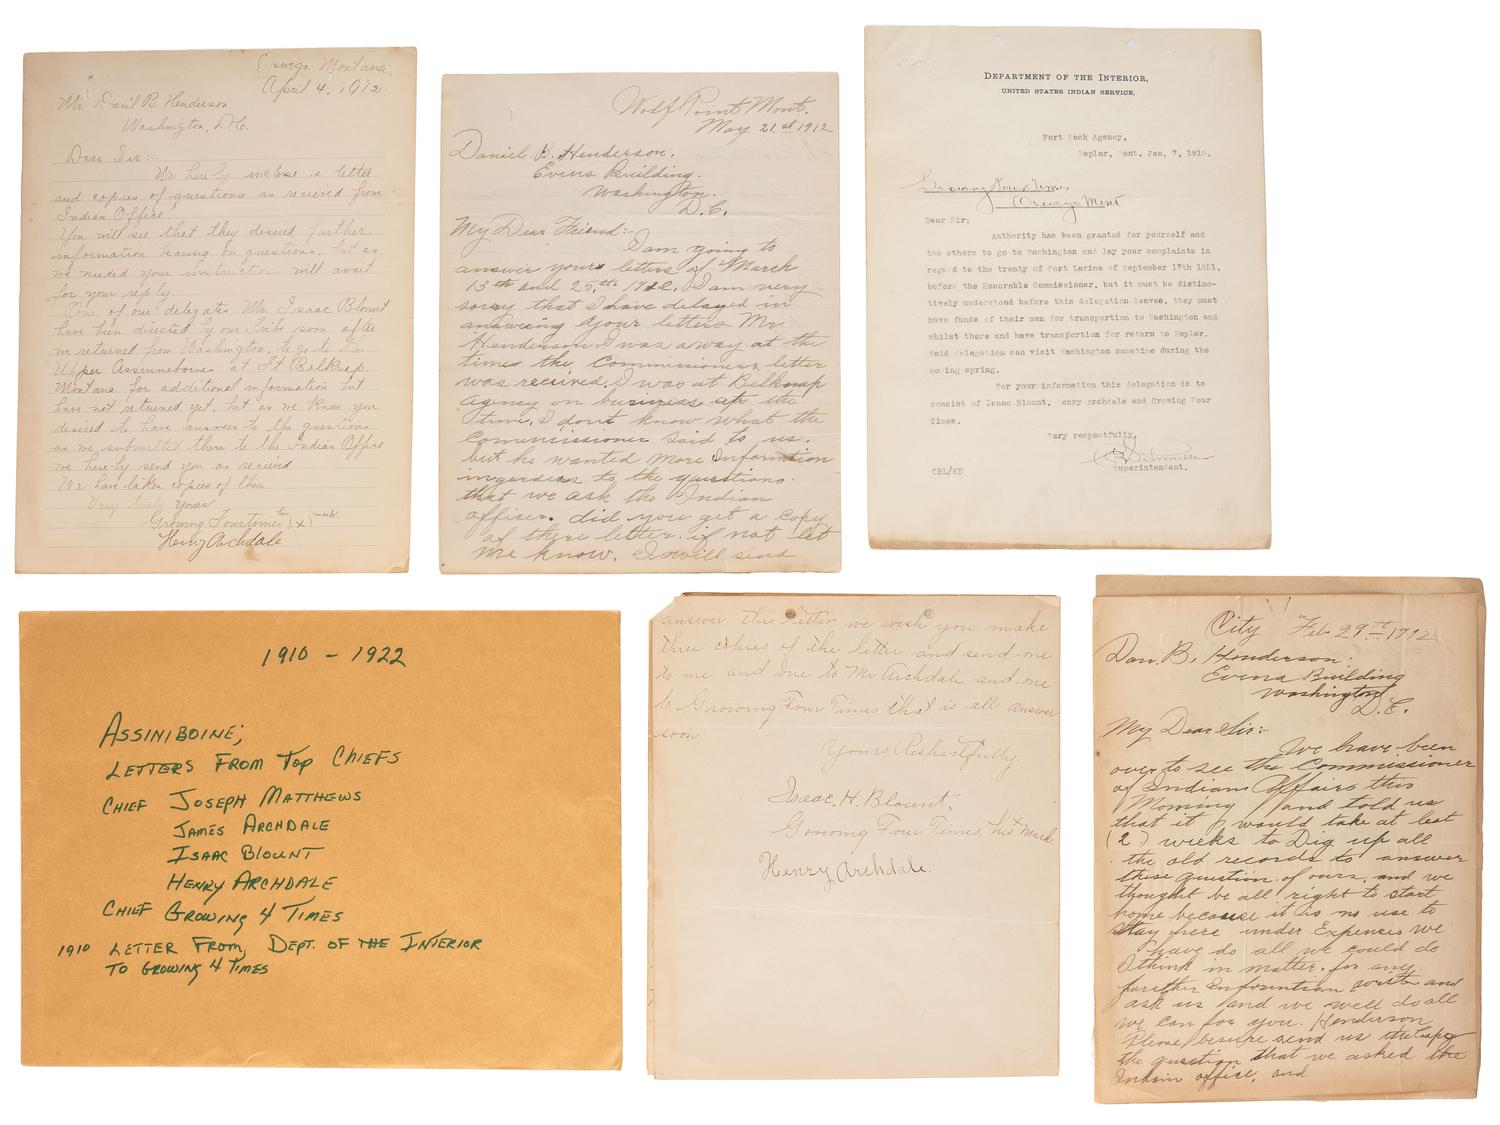 Oswego, Montana
April 4, 1912.
Mr. Dan'l B. Henderson
Washington, D.C.
Dear Sir:-
We hereby inclose a letter
and copies of questions as received from
Indian Office.
You will see that they desired further
information bearing on questions, but as
we needed your instruction will await
for your reply
One of our delegates Mr. Isaac Blount
have been directed by our Tribe soon after
we returned from Washington, to go to the
Upper Assinneboines at Ft Belknap.
Montana for additional information but
have not returned yet, but as we know you
desired to have answers to the questions
as we submitted them to the Indian Office
we here-by send you as recieved
We have taken copies of them
Very truly yours
Growing Fourtimes his (x) mark
Henry Archdale
Wolf Point Mont.
May 21.st 1912
Daniel. B. Henderson.
Evens Building.
Washington.
D.C.
My Dear Friend:-
I am going to
answer yours letters of March
13th and 25.th 1912. I am very
sorry that I have delayed in
answering your letters Mr
Henderson I was away at the
times the Commissioners letter
was received. I was at Belknap
Agency on business at the
time, I dont know what the
Commissioner said to us.
but he wanted more Information
in gardens to the questions.
that we ask the Indian
officer. did you get a copy
of there letter. if not let
me know. I will send
DEPARTMENT OF THE INTERIOR,
UNITED STATES INDIAN SERVICE,
Fort Peck Agency.
Poplar, Mont. Jan. 7, 1910.
Growing Four Times.
Oswego Mont
Dear Sir:
Authority has been granted for yourself and
two others to go to Washington and lay your complaints in
regard to the treaty of Fort Larime of September 17th 1851,
before the Honorable Commissioner, but it must be distinc-
tively understood before this delegation leaves, they must
have funds of their own for transportion to Washington and
whilst there and have transportion for return to Poplar.
Said delegation can visit Washington sometime during the
coming spring.
For your information this delegation is to
consist of Isaac Blount, Henry Archdale and Growing Four
Times.
Very respectfully,
Superintendent.
CBL/HD
1910 - 1922
ASSINIBOINE;
LETTERS FROM TOP CHIEFS
CHIEF JOSEPH MATTHEWS
JAMES ARCHDALE
ISAAC BLOUNT
HENRY ARCHDALE
CHIEF GROWING 4 TIMES
1910 LETTER FROM, DEPT. OF THE INTERIOR
TO GROWING 4 TIMES
answer this letter we wish you make
three copies of the letter and send one
to me and one to Mr Archdale and one
to Growing Four Times that is all answer
soon
Yours Respectfully.
Isaac. H. Blount.
Growing Four Times, his mark
Henry Archdale.
City Feb 29th 1912
Dan. B. Henderson:
Evens Building
Washington
D.C.
My Dear Sir:-
We have been
over to see the Commissioner
of Indians Affairs this
Morning and told us
that it would take at lest
(2) weeks to Dig up all
the old records to answer
these question of ours, and we
thought be all right to start
home because it is no use to
stay here under Expences we
have do all we could do
I think in matter. for any
further Information write and
ask us and we well do all
we can for you. Henderson
Please besure send us the Copy
the question that we asked the
Indian office, and